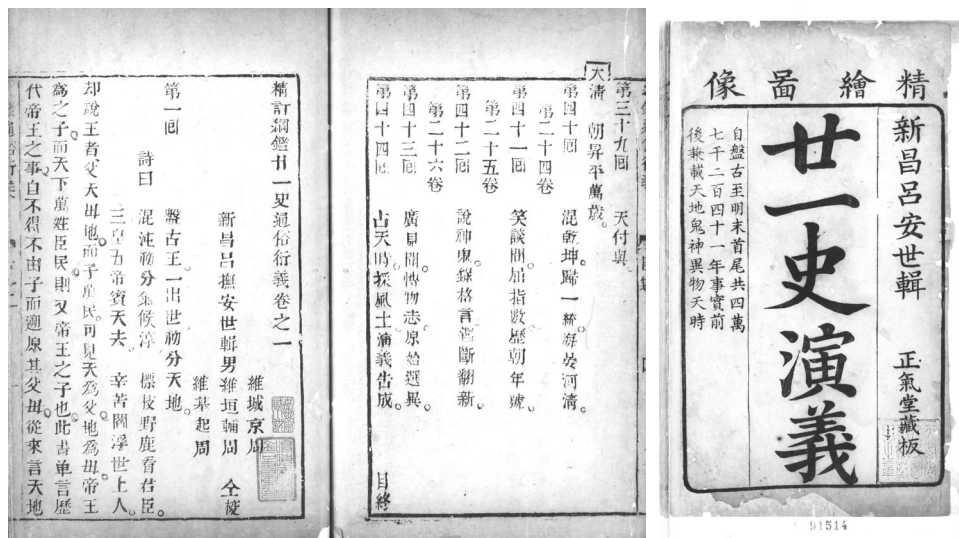 精繪啚像
新昌呂安世輯 正氣堂藏板
廿一史演義
自盤古至明末首尾共四萬
七千二百四十一年事實前
後兼載天地鬼神異物天時
91514
第三十九囘 天付與
大清 朝昇平萬歲。
第四十囘 混乾坤。歸一統。海晏河清。
第二十四卷
第四十一囘 笑談間屈指數歷朝年號。
第二十五卷
第四十二囘 說神鬼錄格言鑑斷翻新。
第二十六卷
第四十三囘 廣見聞博物志原始選異。
第四十四囘 占天時採風土演義告成。 目終
精訂綱鑑廿一史通俗衍義卷之一
維城京周
新昌呂撫安世輯男維垣輔周 仝校
維基起周
第一囘 盤古王一出世初分天地。
詩曰 混沌初分氣候淳 標枝野鹿看君臣。
三皇五帝賓天去 辛苦閻浮世上人。
却說王者父天母地。而子萬民。可見天為父。地為母。帝王
為之子。而天下萬姓臣民。則又帝王之子也。此書单言歷
代帝王之事。自不得不由子而遡原其父母。從來言天地